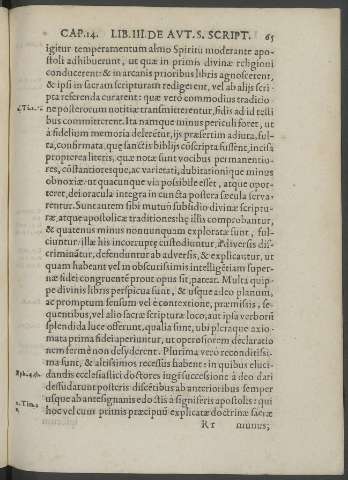 CAP.14. LIB.III.DE AVT.S. SCRIPT. 65
igitur temperamentum almo Spiritu moderante apo-
stoli adhibuerunt, ut quæ in primis divinæ religioni
conducerent: & in arcanis prioribus libris agnoscerent,
& ipsi in sacram scripturam redigerent, vel ab alijs scri-
pta referenda curarent: quæ verò commodius traditio
ne posterorum notitiæ transmitterentur, fidis ad id testi
bus committerent. Ita namque minus periculi foret, ut
à fidelium memoria delerẽtur, ijs præsertim adiuta, ful-
ta, confirmata, quę sanctis biblijs cõscripta fuissent, inci sa
propterea literis, quæ notæ sunt vocibus permanentio-
res, cõstantioresque, ac varietati, dubitationique minus
obnoxiæ: ut quacunque via possibile esset, atque opor-
teret, dei oracula integra in cuncta postera sæcula serva-
rentur. Sunt autem sibi mutuò subsidio divinæ scriptu-
ræ, atque apostolicæ traditiones: hę illis comprobantur,
& quatenus minus nonnunquam exploratæ sunt, ful-
ciuntur: illæ his incorruptę custodiuntur, & diversis dis-
criminãtur, defenduntur ab adversis, & explicantur, ut
quam habeant vel in obscurissimis intelligẽtiam super-
næ fidei congruentẽ prout opus sit, pateat. Multa quip-
pe divinis libris perspicua sunt, & usque adeo planum,
ac promptum sensum vel è contextione, præmissis, se-
quentibus, vel alio sacræ scripturæ loco, aut ipsa verborũ
splendida luce offerunt, qualia sunt, ubi pleraque axio-
mata prima fidei aperiuntur, ut operosiorem declaratio
nem fermè non desyderent. Plurima verò reconditissi-
ma sunt, & altissimos recessus habent: in quibus eluci-
dandis ecclesiastici doctores iugi successione à deo dari
desudarunt posteris discẽtibus ab anterioribus semper
usque ab antesignanis edoctis à signiferis apostolis: qui
hoc vel cum primis præcipuũ explicatæ doctrinæ sacræ
Rr munus;
2.Tim.2
Eph.4.
2.Tim.2